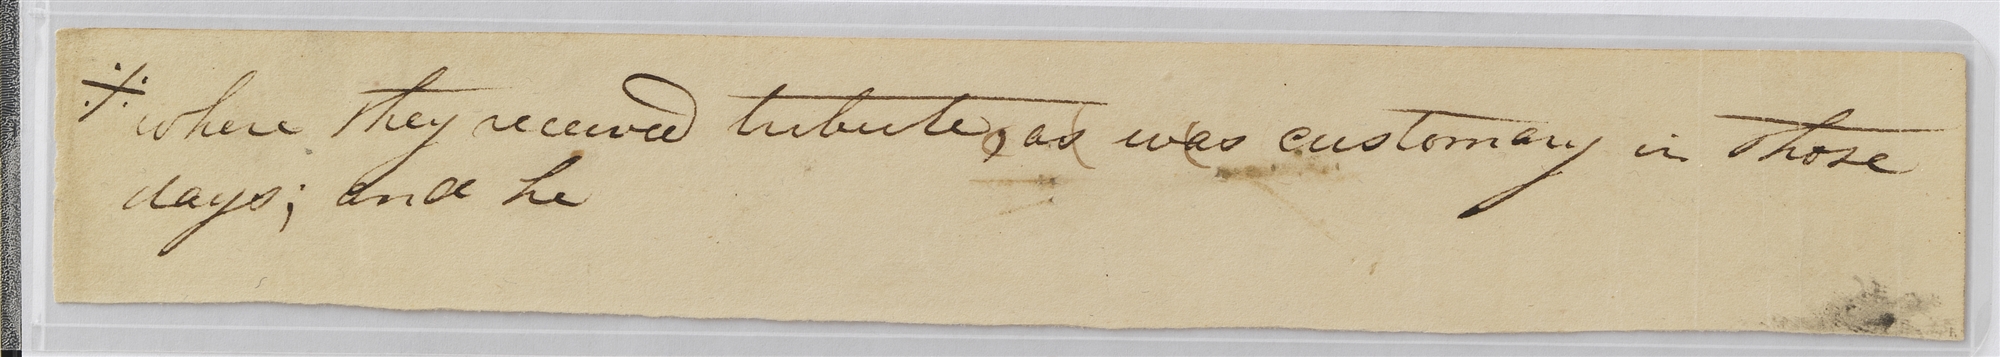 ※ where they received tribute, as was customary in those
days; and he